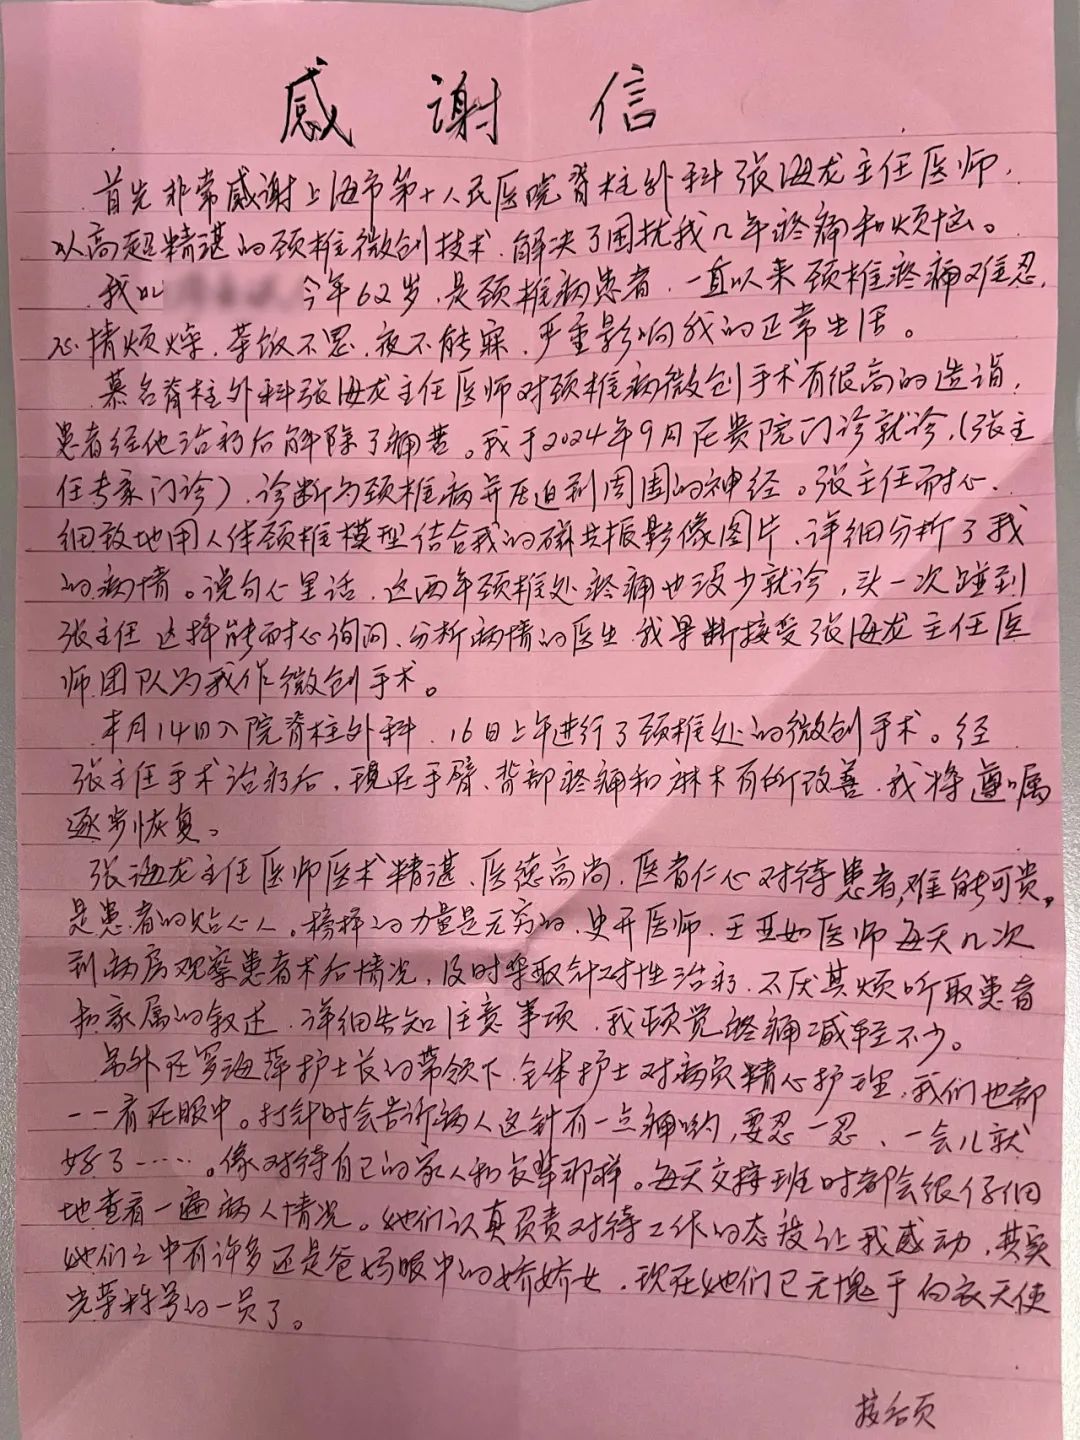 感谢信
首先非常感谢上海市第十人民医院脊柱外科张海龙主任医师，
以高超精湛的颈椎微创技术，解决了困扰我几年疼痛和烦恼。
我叫 今年62岁，是颈椎病患者，一直以来颈椎疼痛难忍，
心情烦燥，茶饭不思，夜不能寐，严重影响我的正常生活。
慕名脊柱外科张海龙主任医师对颈椎病微创手术有很高的造诣，
患者经他治疗后解除了痛苦。我于2024年9月在贵院门诊就诊，(张主
任专家门诊)，诊断为颈椎病并压迫到周围的神经。张主任耐心、
细致地用人体颈椎模型结合我的磁共振影像图片，详细分析了我
的病情。说句心里话，这两年颈椎处疼痛也没少就诊，头一次碰到
张主任这样能耐心询问、分析病情的医生，我果断接受张海龙主任医
师团队为我作微创手术。
本月14日入院脊柱外科，16日上午进行了颈椎处的微创手术。经
张主任手术治疗后，现在手臂、背部疼痛和麻木有所改善，我将遵嘱
逐步恢复。
张海龙主任医师医术精湛、医德高尚，医者仁心对待患者，难能可贵，
是患者的贴心人。榜样的力量是无穷的，史开医师、王亚如医师每天几次
到病房观察患者术后情况，及时采取针对性治疗，不厌其烦听取患者
和家属的叙述，详细告知注意事项，我顿觉疼痛减轻不少。
另外在罗海萍护士长的带领下，全体护士对病员精心护理，我们也都
一一看在眼中。打针时会告诉病人这针有一点痛哟，要忍一忍，一会儿就
好了……。像对待自己的家人和长辈那样。每天交接班时都会很仔细
地查看一遍病人情况。她们认真负责对待工作的态度让我感动，其实
她们之中有许多还是爸妈眼中的娇娇女，现在她们已无愧于白衣天使
光荣称号的一员了。
接后页